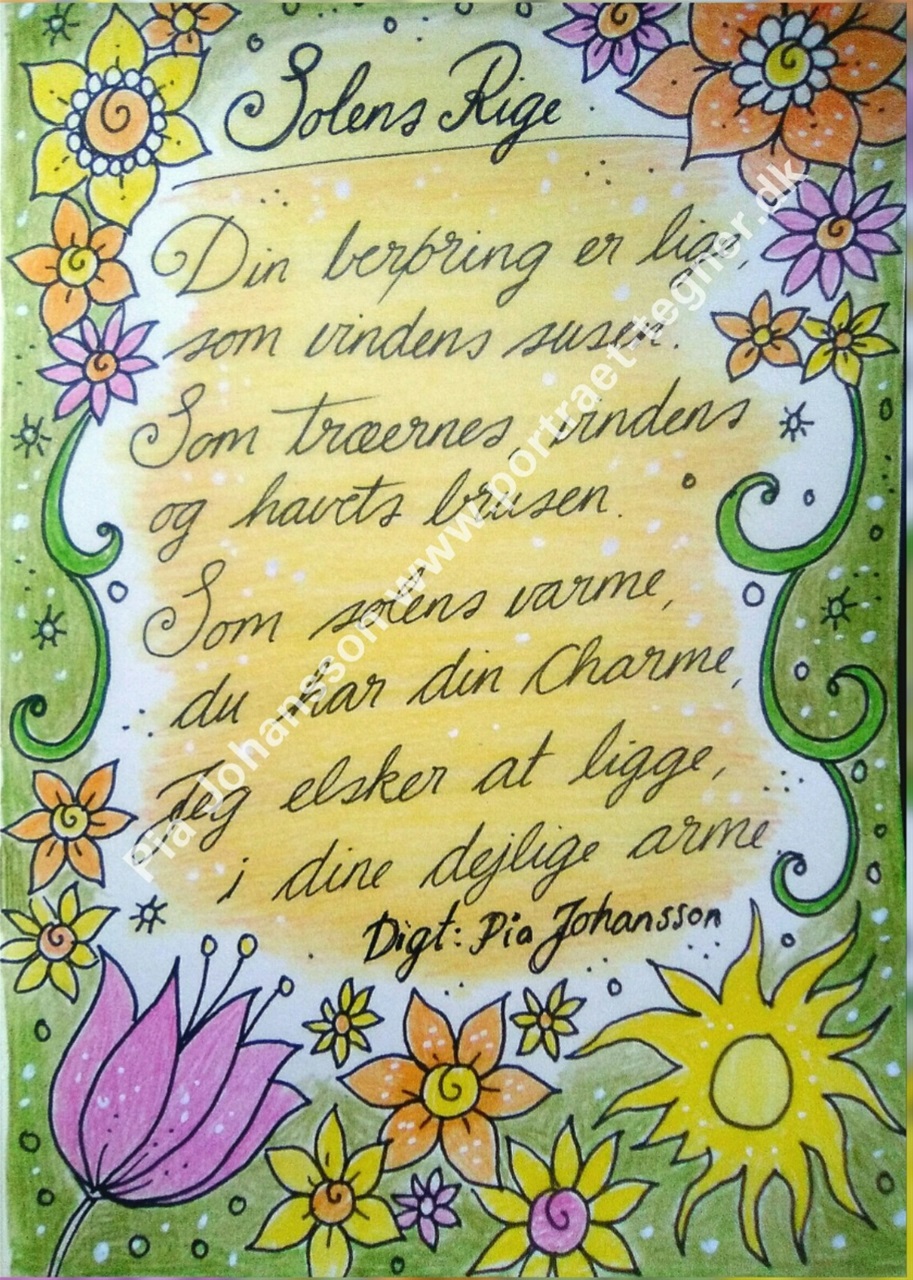 Solens Rige
Din berøring er lige,
som vindens susen.
Som træernes, vindens
og havets brusen.
Som solens varme,
du har din Charme,
Jeg elsker at ligge,
i dine dejlige arme.
Digt: Pia Johansson
Pia Johansson www.portraet-tegner.dk